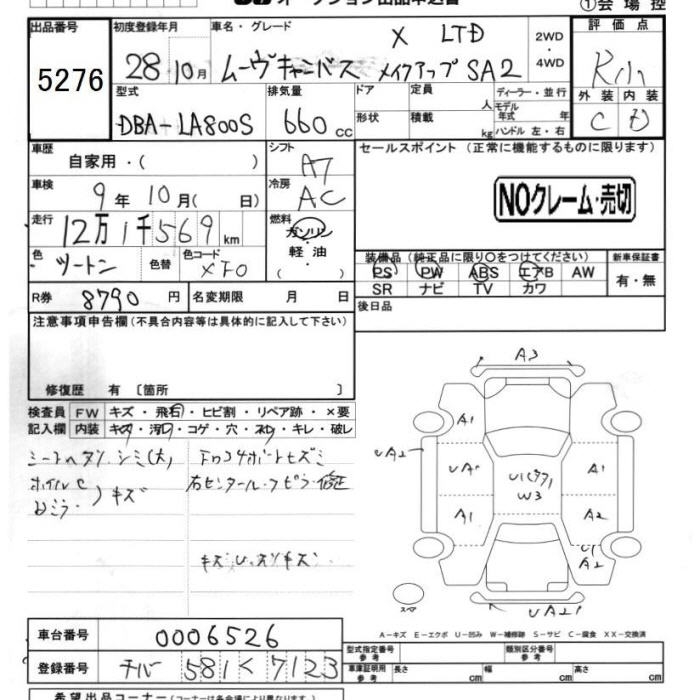 オークション出品申込書
①会場控
出品番号
5276
初度登録年月
28年10月
車名・グレード
X LTD
ムーヴキャンバス メイクアップSA2
2WD
・
4WD
評価点
外装 内装
C D
型式
DBA-LA800S
排気量
660 cc
ドア
形状
定員
人
積載
kg
ディーラー・並行
モデル
年式 年
ハンドル 左・右
車歴
自家用・( )
シフト
AT
セールスポイント (正常に機能するものに限ります)
車検
9年10月( 日)
冷房
AC
NOクレーム・売切
走行
12万1千569 km
燃料
ガソリン
軽油
( ・ )
色
ツートン
色替
色コード
XF0
装備品 (純正品に限り○をつけてください)
PS PW ABS エアB AW
SR ナビ TV カワ
新車保証書
有・無
R券
8790 円
名変期限 月 日
後日品
注意事項申告欄(不具合内容等は具体的に記入して下さい)
修復歴 有 〔箇所 〕
検査員
記入欄
FW キズ・飛石・ヒビ割・リペア跡・×要
内装 キズ・汚レ・コゲ・穴・ネジ・キレ・破レ
シートヘタリ、シミ(大)
キズ
A3
A1
UA2
UA1
U1
W3
A1
A1
A2
U1
A2
UA2
スペア
A-キズ E-エクボ U-凹み W-補修跡 S-サビ C-腐食 XX-交換済
車台番号
0006526
登録番号
チバ 581 く 7123
型式指定番号
類別区分番号
車庫証明用
参考
長さ cm
幅 cm
高さ cm
希望出品コーナー(コーナーは各会場により異なります)